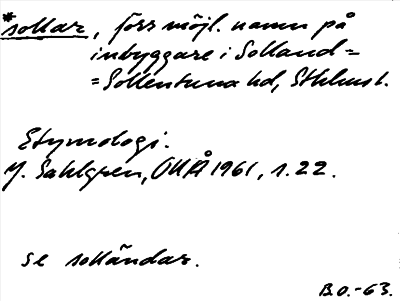 *sollar, förr möjl. namn på
inbyggare i Solland=
=Sollentuna hd, Sthlms l.
Etymologi.
J. Sahlgren, OUÅ 1961, s. 22.
se solländar.
B.O.-63.